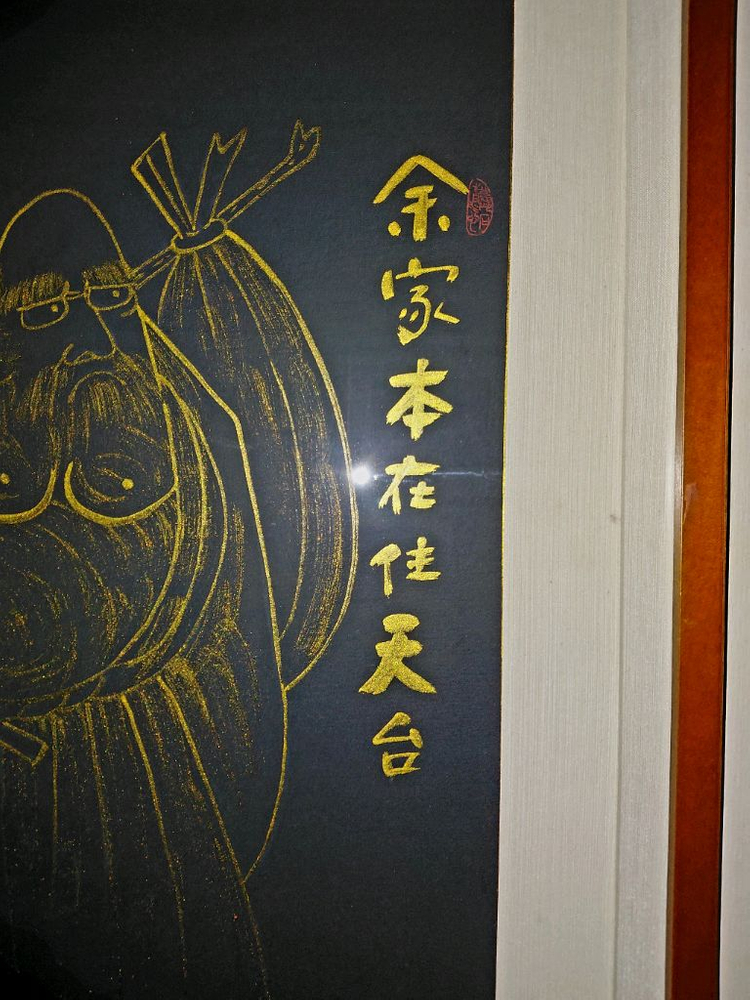 余家本在住天台